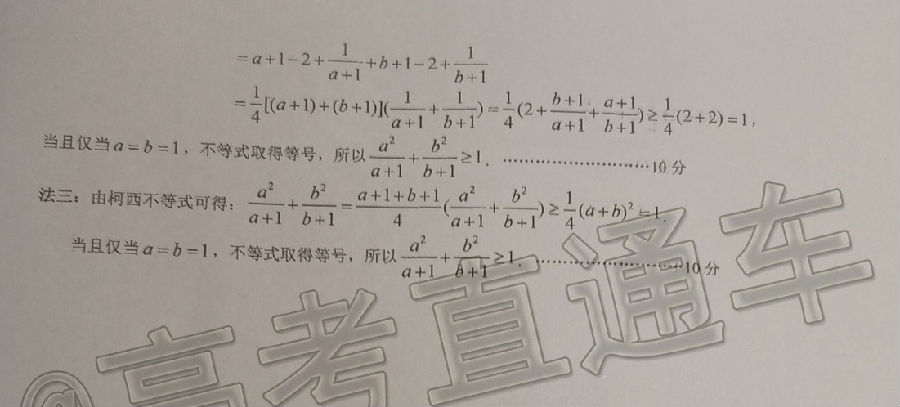 =a+1-2+\frac{1}{a+1}+b+1-2+\frac{1}{b+1}
=\frac{1}{4}[(a+1)+(b+1)](\frac{1}{a+1}+\frac{1}{b+1})=\frac{1}{4}(2+\frac{b+1}{a+1}+\frac{a+1}{b+1})≥\frac{1}{4}(2+2)=1,
当且仅当a=b=1，不等式取得等号，所以\frac{a^2}{a+1}+\frac{b^2}{b+1}≥1. ……………………10分
法三：由柯西不等式可得：\frac{a^2}{a+1}+\frac{b^2}{b+1}=\frac{a+1+b+1}{4}(\frac{a^2}{a+1}+\frac{b^2}{b+1})≥\frac{1}{4}(a+b)^2=1,
当且仅当a=b=1，不等式取得等号，所以\frac{a^2}{a+1}+\frac{b^2}{b+1}≥1. ……………………10分
@高考直通车